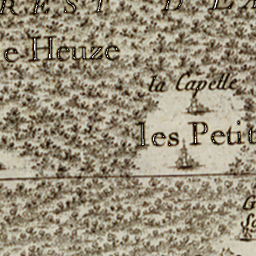 REST D LA
e Heuze
la Capelle
les Petit
G